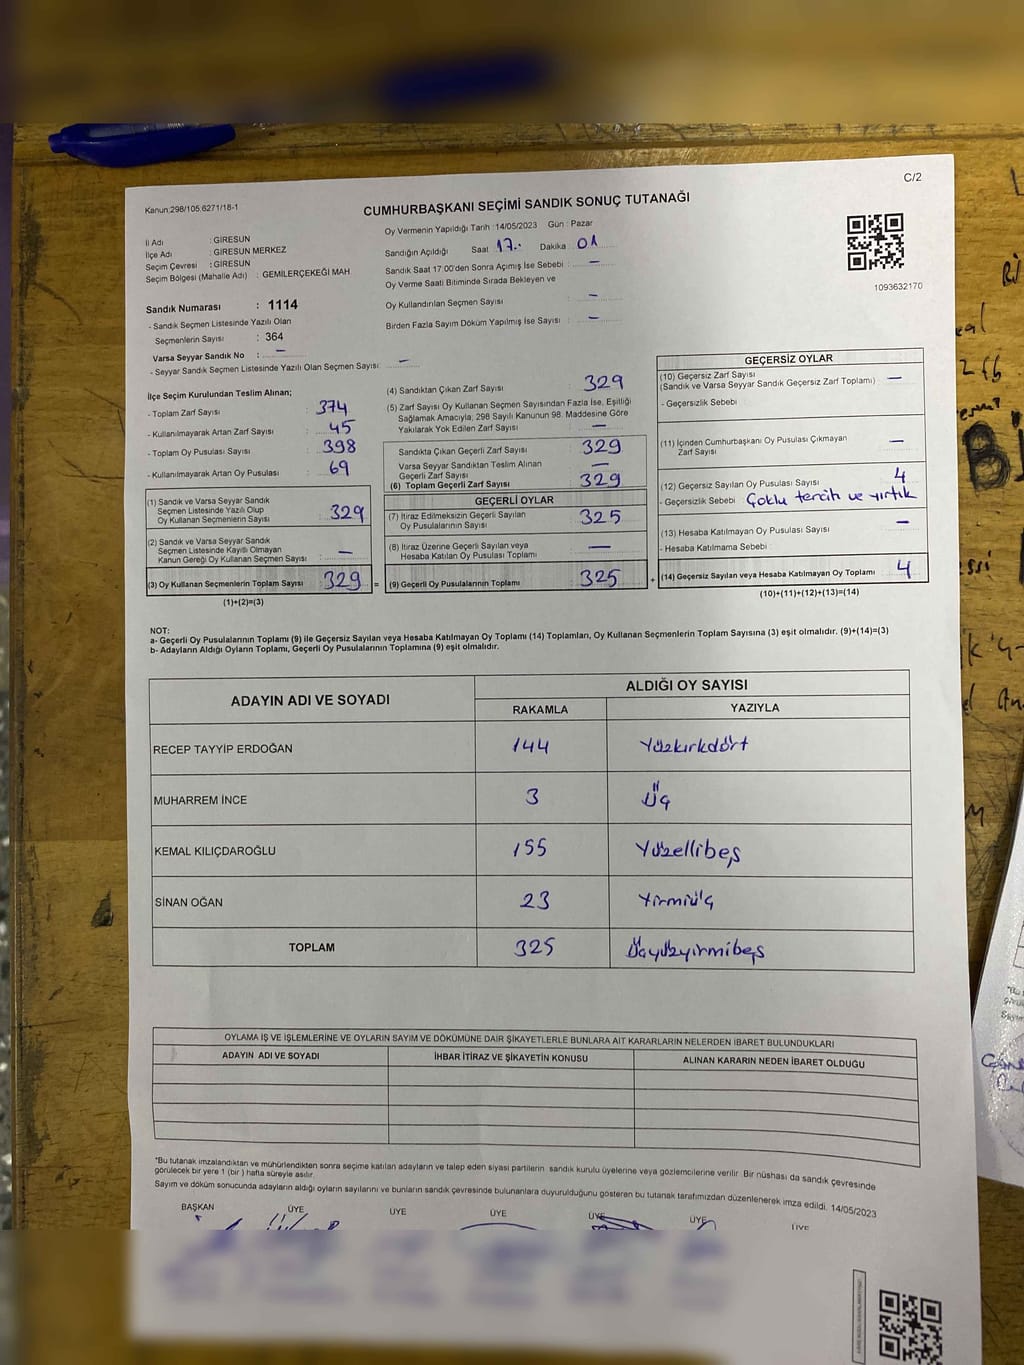 C/2
Kanun:298/105;6271/18-1
CUMHURBAŞKANI SEÇİMİ SANDIK SONUÇ TUTANAĞI
İl Adı : GİRESUN
İlçe Adı : GİRESUN MERKEZ
Seçim Çevresi : GİRESUN
Seçim Bölgesi (Mahalle Adı) : GEMİLERÇEKEĞİ MAH
Sandık Numarası : 1114
- Sandık Seçmen Listesinde Yazılı Olan
Seçmenlerin Sayısı : 364
Varsa Seyyar Sandık No : —
- Seyyar Sandık Seçmen Listesinde Yazılı Olan Seçmen Sayısı: —
Oy Vermenin Yapıldığı Tarih : 14/05/2023 Gün : Pazar
Sandığın Açıldığı Saat 17.. Dakika 01
Sandık Saat 17:00'den Sonra Açımış İse Sebebi : —
Oy Verme Saati Bitiminde Sırada Bekleyen ve
Oy Kullandırılan Seçmen Sayısı : —
Birden Fazla Sayım Döküm Yapılmış İse Sayısı : —
1093632170
İlçe Seçim Kurulundan Teslim Alınan;
- Toplam Zarf Sayısı : 374
- Kullanılmayarak Artan Zarf Sayısı : 45
- Toplam Oy Pusulası Sayısı : 398
- Kullanılmayarak Artan Oy Pusulası : 69
(1) Sandık ve Varsa Seyyar Sandık
Seçmen Listesinde Yazılı Olup
Oy Kullanan Seçmenlerin Sayısı : 329
(2) Sandık ve Varsa Seyyar Sandık
Seçmen Listesinde Kayıtlı Olmayan
Kanun Gereği Oy Kullanan Seçmen Sayısı : —
(3) Oy Kullanan Seçmenlerin Toplam Sayısı 329 =
(1)+(2)=(3)
(4) Sandıktan Çıkan Zarf Sayısı : 329
(5) Zarf Sayısı Oy Kullanan Seçmen Sayısından Fazla İse, Eşitliği
Sağlamak Amacıyla; 298 Sayılı Kanunun 98. Maddesine Göre
Yakılarak Yok Edilen Zarf Sayısı : —
Sandıkta Çıkan Geçerli Zarf Sayısı : 329
Varsa Seyyar Sandıktan Teslim Alınan
Geçerli Zarf Sayısı : —
(6) Toplam Geçerli Zarf Sayısı : 329
GEÇERLİ OYLAR
(7) İtiraz Edilmeksizin Geçerli Sayılan
Oy Pusulalarının Sayısı : 325
(8) İtiraz Üzerine Geçerli Sayılan veya
Hesaba Katılan Oy Pusulası Toplamı : —
(9) Geçerli Oy Pusulalarının Toplamı : 325 +
GEÇERSİZ OYLAR
(10) Geçersiz Zarf Sayısı
(Sandık ve Varsa Seyyar Sandık Geçersiz Zarf Toplamı) : —
- Geçersizlik Sebebi :
(11) İçinden Cumhurbaşkanı Oy Pusulası Çıkmayan
Zarf Sayısı : —
(12) Geçersiz Sayılan Oy Pusulası Sayısı : 4
- Geçersizlik Sebebi : Çoklu tercih ve yırtık
(13) Hesaba Katılmayan Oy Pusulası Sayısı : —
- Hesaba Katılmama Sebebi :
(14) Geçersiz Sayılan veya Hesaba Katılmayan Oy Toplamı : 4
(10)+(11)+(12)+(13)=(14)
NOT:
a- Geçerli Oy Pusulalarının Toplamı (9) ile Geçersiz Sayılan veya Hesaba Katılmayan Oy Toplamı (14) Toplamları, Oy Kullanan Seçmenlerin Toplam Sayısına (3) eşit olmalıdır. (9)+(14)=(3)
b- Adayların Aldığı Oyların Toplamı, Geçerli Oy Pusulalarının Toplamına (9) eşit olmalıdır.
ADAYIN ADI VE SOYADI ALDIĞI OY SAYISI
RAKAMLA YAZIYLA
RECEP TAYYİP ERDOĞAN 144 Yüzkırkdört
MUHARREM İNCE 3 Üç
KEMAL KILIÇDAROĞLU 155 Yüzellibeş
SİNAN OĞAN 23 Yirmiüç
TOPLAM 325 Üçyüzyirmibeş
OYLAMA İŞ VE İŞLEMLERİNE VE OYLARIN SAYIM VE DÖKÜMÜNE DAİR ŞİKAYETLERLE BUNLARA AİT KARARLARIN NELERDEN İBARET BULUNDUKLARI
ADAYIN ADI VE SOYADI İHBAR İTİRAZ VE ŞİKAYETİN KONUSU ALINAN KARARIN NEDEN İBARET OLDUĞU
*Bu tutanak imzalandıktan ve mühürlendikten sonra seçime katılan adayların ve talep eden siyasi partilerin sandık kurulu üyelerine veya gözlemcilerine verilir. Bir nüshası da sandık çevresinde
görülecek bir yere 1 (bir ) hafta süreyle asılır.
Sayım ve döküm sonucunda adayların aldığı oyların sayılarını ve bunların sandık çevresinde bulunanlara duyurulduğunu gösteren bu tutanak tarafımızdan düzenlenerek imza edildi. 14/05/2023
BAŞKAN ÜYE ÜYE ÜYE ÜYE ÜYE ÜYE